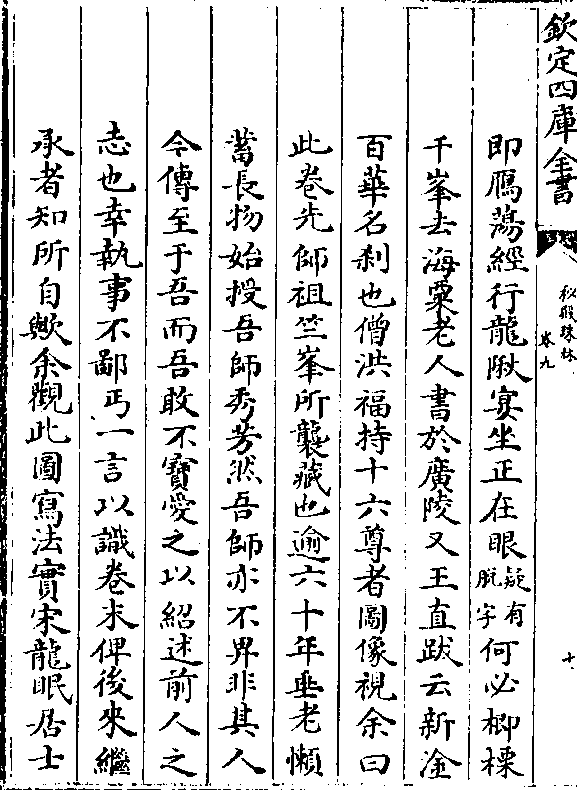 欽定四庫全書
秘殿珠林
卷九
十
即鴈蕩經行龍湫宴坐正在眼疑有脱字何必楖栗
千峯去海粟老人書於廣陵又王直跋云新淦
百華名刹也僧洪福持十六尊者圖像視余曰
此卷先師祖竺峯所襲藏也逾六十年垂老懶
蓄長物始授吾師秀芳然吾師亦不畀非其人
今傳至于吾而吾敢不寶愛之以紹述前人之
志也幸執事不鄙丐一言以識卷末俾後來繼
承者知所自歟余觀此圖寫法實宋龍眠居士